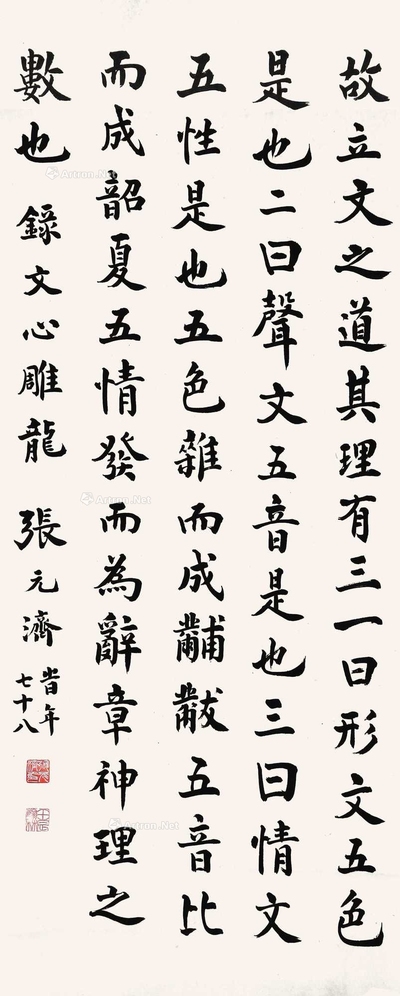 故立文之道其理有三一曰形文五色
是也二曰聲文五音是也三曰情文
五性是也五色雜而成黼黻五音比
而成韶夏五情發而為辭章神理之
數也 錄文心雕龍 張元濟 時年七十八
Artron.Net
Artron.Net
Artron.Net